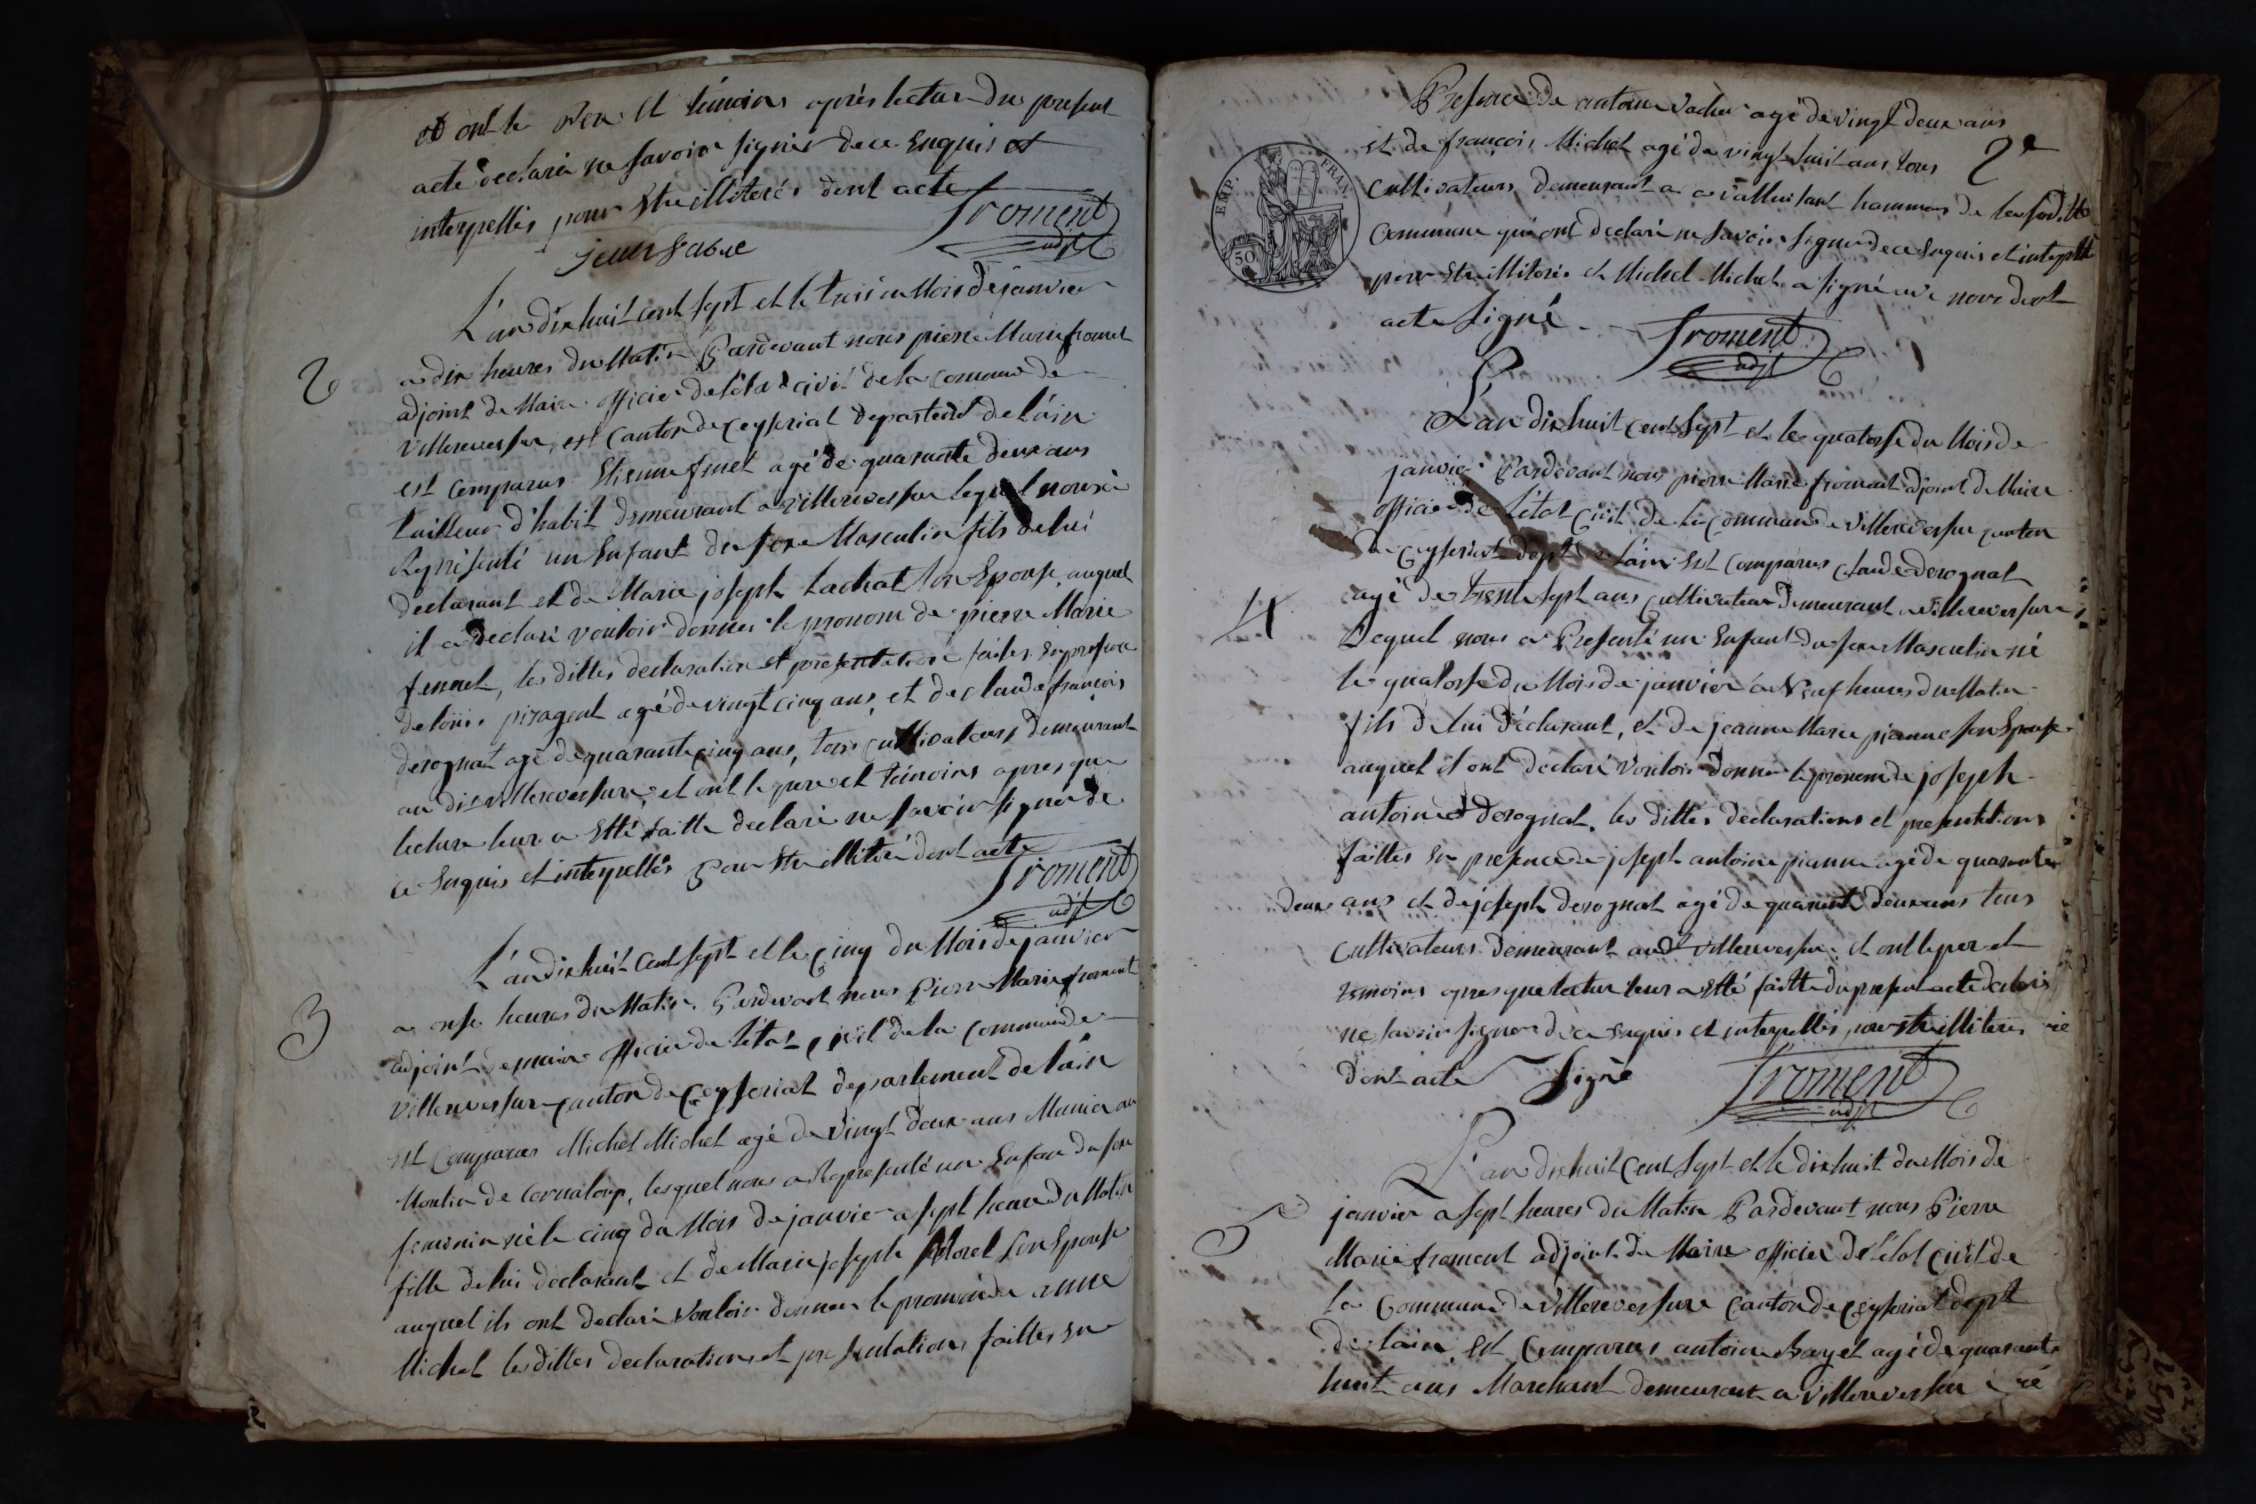 et ont le Pere Et temoins après lecture du present
acte declaré ne savoir signer de ce Enquis et
interpellés pour Etre illiterés dont acte
froment
adjt
2
L'an dix huit cent sept et le trois du Mois de janvier
a dix heures du Matin Pardevant nous pierre Marie froment
adjoint de Maire officier de l'état civil de la Comune de
villereversure, et Canton de Ceyseriat departemt de l'ain
est Comparus Etienne ferret agé de quarante deux ans
tailleur d'habit demeurant a villereversure lequel nous à
Représenté un Enfant du sexe Masculin fils de lui
declarant et de Marie joseph Lachat son Epouse, auquel
il a declaré vouloir donner le pronom de pierre Marie
les dittes declaration et presentation faites en presence
de loüis agé de vingt cinq ans, et de claude francois
derognat agé de quarante cinq ans, tous cultivateurs demeurant
au dit villereversure, et ont le pere et témoins apres que
lecture leur a Etté faitte declaré ne savoir signer de
ce Enquis et interpellés Pour Etre illitéré dont acte
froment
adjt
3
L'an dix huit Cent sept et le Cinq du Mois de janvier
a onse heures du Matin. Pardevant nous Pierre Marie froment
adjoint de maire officier de l'état civil de la Commune de
villereversure Canton de Ceyseriat departement de l'ain
est Comparus Michel Michel agé de vingt deux ans Munier au
Moulin de lesquel nous a Représenté un Enfant du sexe
feminin né le cinq du Mois de janvier a sept heure du Matin
fille de lui declarant et de Marie joseph Morel son Epouse
auquel ils ont declaré vouloir donner le pronom de anne
Michel les dittes declarations et presentations faittes en
Presence de antoine Vacher agé de vingt deux ans
et de françois Michel agé de vingt huit ans tous
2e
EMP. FRAN.
50
Cultivateurs demeurant a hammeau de la susditte
Commune qui ont declaré ne savoir signer de ce Enquis et interpellé
pour Etre illiterés et Michel Michel a signé avec nous dont
acte signé
froment
adjt
L'an dix huit Cent sept et le quatorse du Mois de
janvier Pardevant nous pierre Marie froment adjoint de Maire
officier de l'état Civil de la Commune de villereversure canton
de Ceyseriat dept de l'ain Est Comparus claude derognat
4
agé de trente sept ans Cultivateur demeurant a villereversure
Lequel nous a Presenté un Enfant du sexe Masculin né
le quatorse du Mois de janvier a Neuf heures du Matin
fils de lui déclarant, et de jeanne Marie pianne son Epouse
auquel il ont declaré vouloir donner le pronom de joseph
antoine derognat. les dittes declarations et presentations
faittes En presence de joseph antoine pianne agé de quarante
deux ans et de joseph derognat agé de quarante deux ans tous
Cultivateurs demeurant audt villereversure et ont le pere et
temoins apres que lecture leur a Etté faitte du present acte declaré
ne savoir signer de ce enquis et interpellés pour etre illiteres
dont acte signé
froment
adjt
L'an dix huit Cent sept et le dix huit du Mois de
5
janvier a sept heures du Matin Pardevant nous Pierre
Marie froment adjoint du Maire officier de l'état Civil de
la Commune de villereversure Canton de Ceyseriat dept
de l'ain Est Comparus antoine agé de quarante
huit ans Marchant demeurant a villereversure